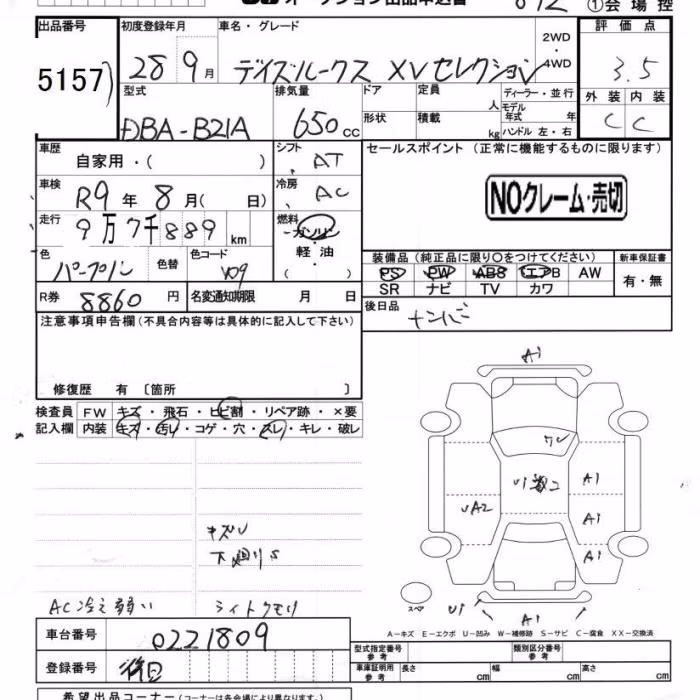 オークション出品申込書
①会場控
出品番号 初度登録年月 車名・グレード 2WD・4WD 評価点
5157 28 9月 デイズルークス XVセレクション 3.5
型式 排気量 ドア 定員 人 ディーラー・並行 外装 内装
DBA-B21A 650cc 形状 積載 kg モデル年式 年 ハンドル 左・右 C C
車歴 自家用・( ) シフト AT セールスポイント (正常に機能するものに限ります)
車検 R9年 8月( 日) 冷房 AC NOクレーム・売切
走行 9万7千889km 燃料 ガソリン
軽油
( )
色 パープル 色替 色コード 装備品 (純正品に限り〇をつけてください) 新車保証書
PS PW ABS エアB AW 有・無
SR ナビ TV カワ
R券 8860円 名変通知期限 月 日 後日品 ナンバー
注意事項申告欄(不具合内容等は具体的に記入して下さい)
修復歴 有〔箇所 〕
検査員 FW キズ・飛石・ヒビ割・リペア跡・×要
記入欄 内装 キズ・汚レ・コゲ・穴・スレ・キレ・破レ
A1
ワレ
A1
UA2
A1
A1
キズU
下廻りS
AC冷え弱い ライトクモリ
スペア U1 A1
A-キズ E-エクボ U-凹み W-補修跡 S-サビ C-腐食 XX-交換済
車台番号 0221809
型式指定番号 参考 類別区分番号 参考
登録番号 後日
車庫証明用 参考 長さ cm 幅 cm 高さ cm
希望出品コーナー(コーナーは各会場により異なります。)